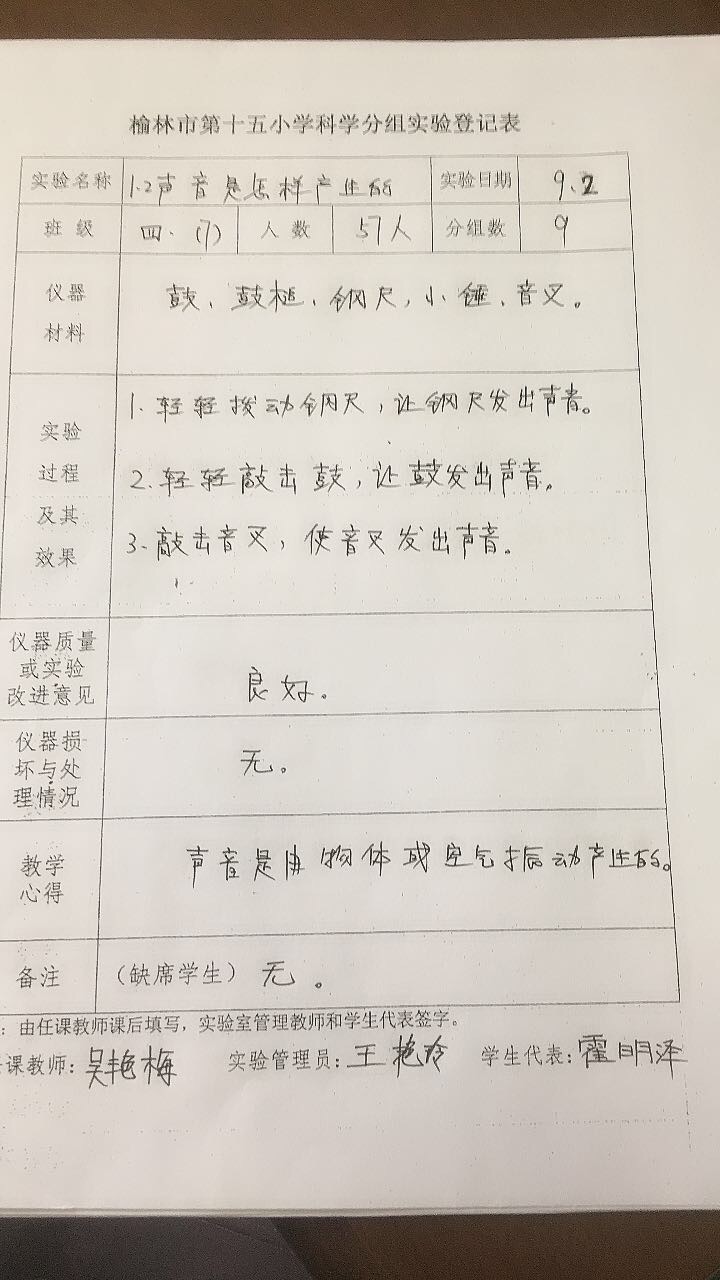 榆林市第十五小学科学分组实验登记表
实验名称 1.2声音是怎样产生的 实验日期 9.2
班级 四.(7) 人数 57人 分组数 9
仪器
材料
鼓、鼓槌、钢尺,小锤、音叉。
实验
过程
及其
效果
1.轻轻拨动钢尺,让钢尺发出声音。
2.轻轻敲击鼓,让鼓发出声音。
3.敲击音叉,使音叉发出声音。
仪器质量
或实验
改进意见
良好。
仪器损
坏与处
理情况
无。
教学
心得
声音是由物体或空气振动产生的。
备注 (缺席学生) 无。
:由任课教师课后填写,实验室管理教师和学生代表签字。
课教师:吴艳梅 实验管理员:王艳玲 学生代表:霍明泽